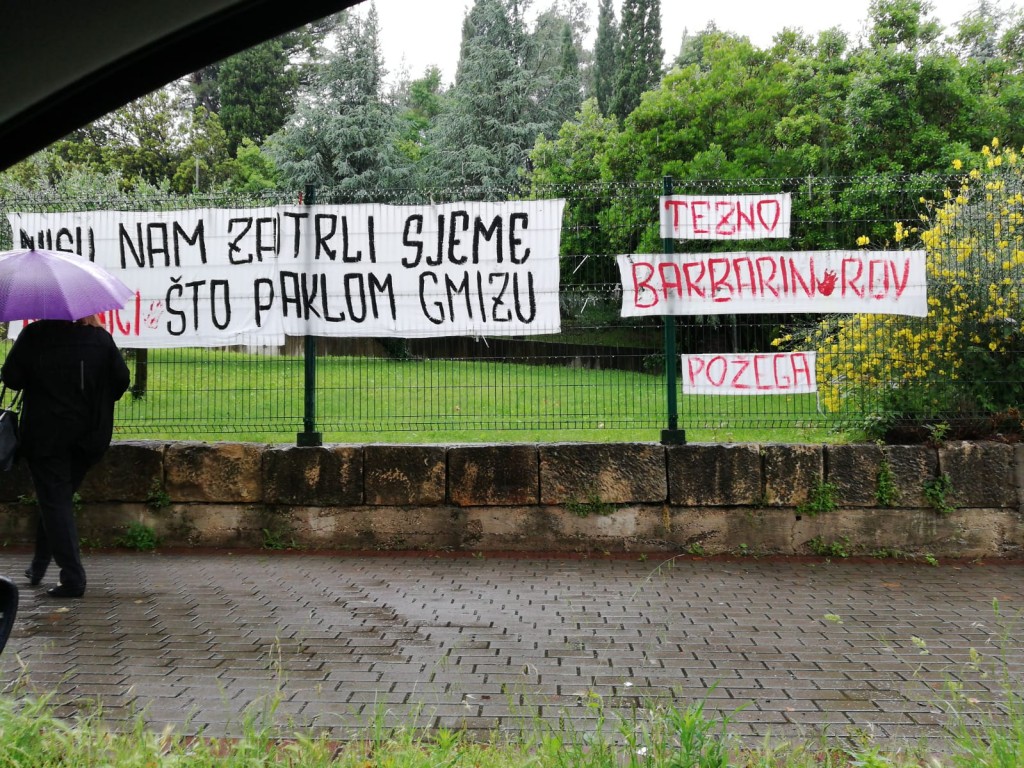 NISU NAM ZATRLI SJEME
ŠTO PAKLOM GMIZU
TEZNO
BARBARIN ROV
POZEGA